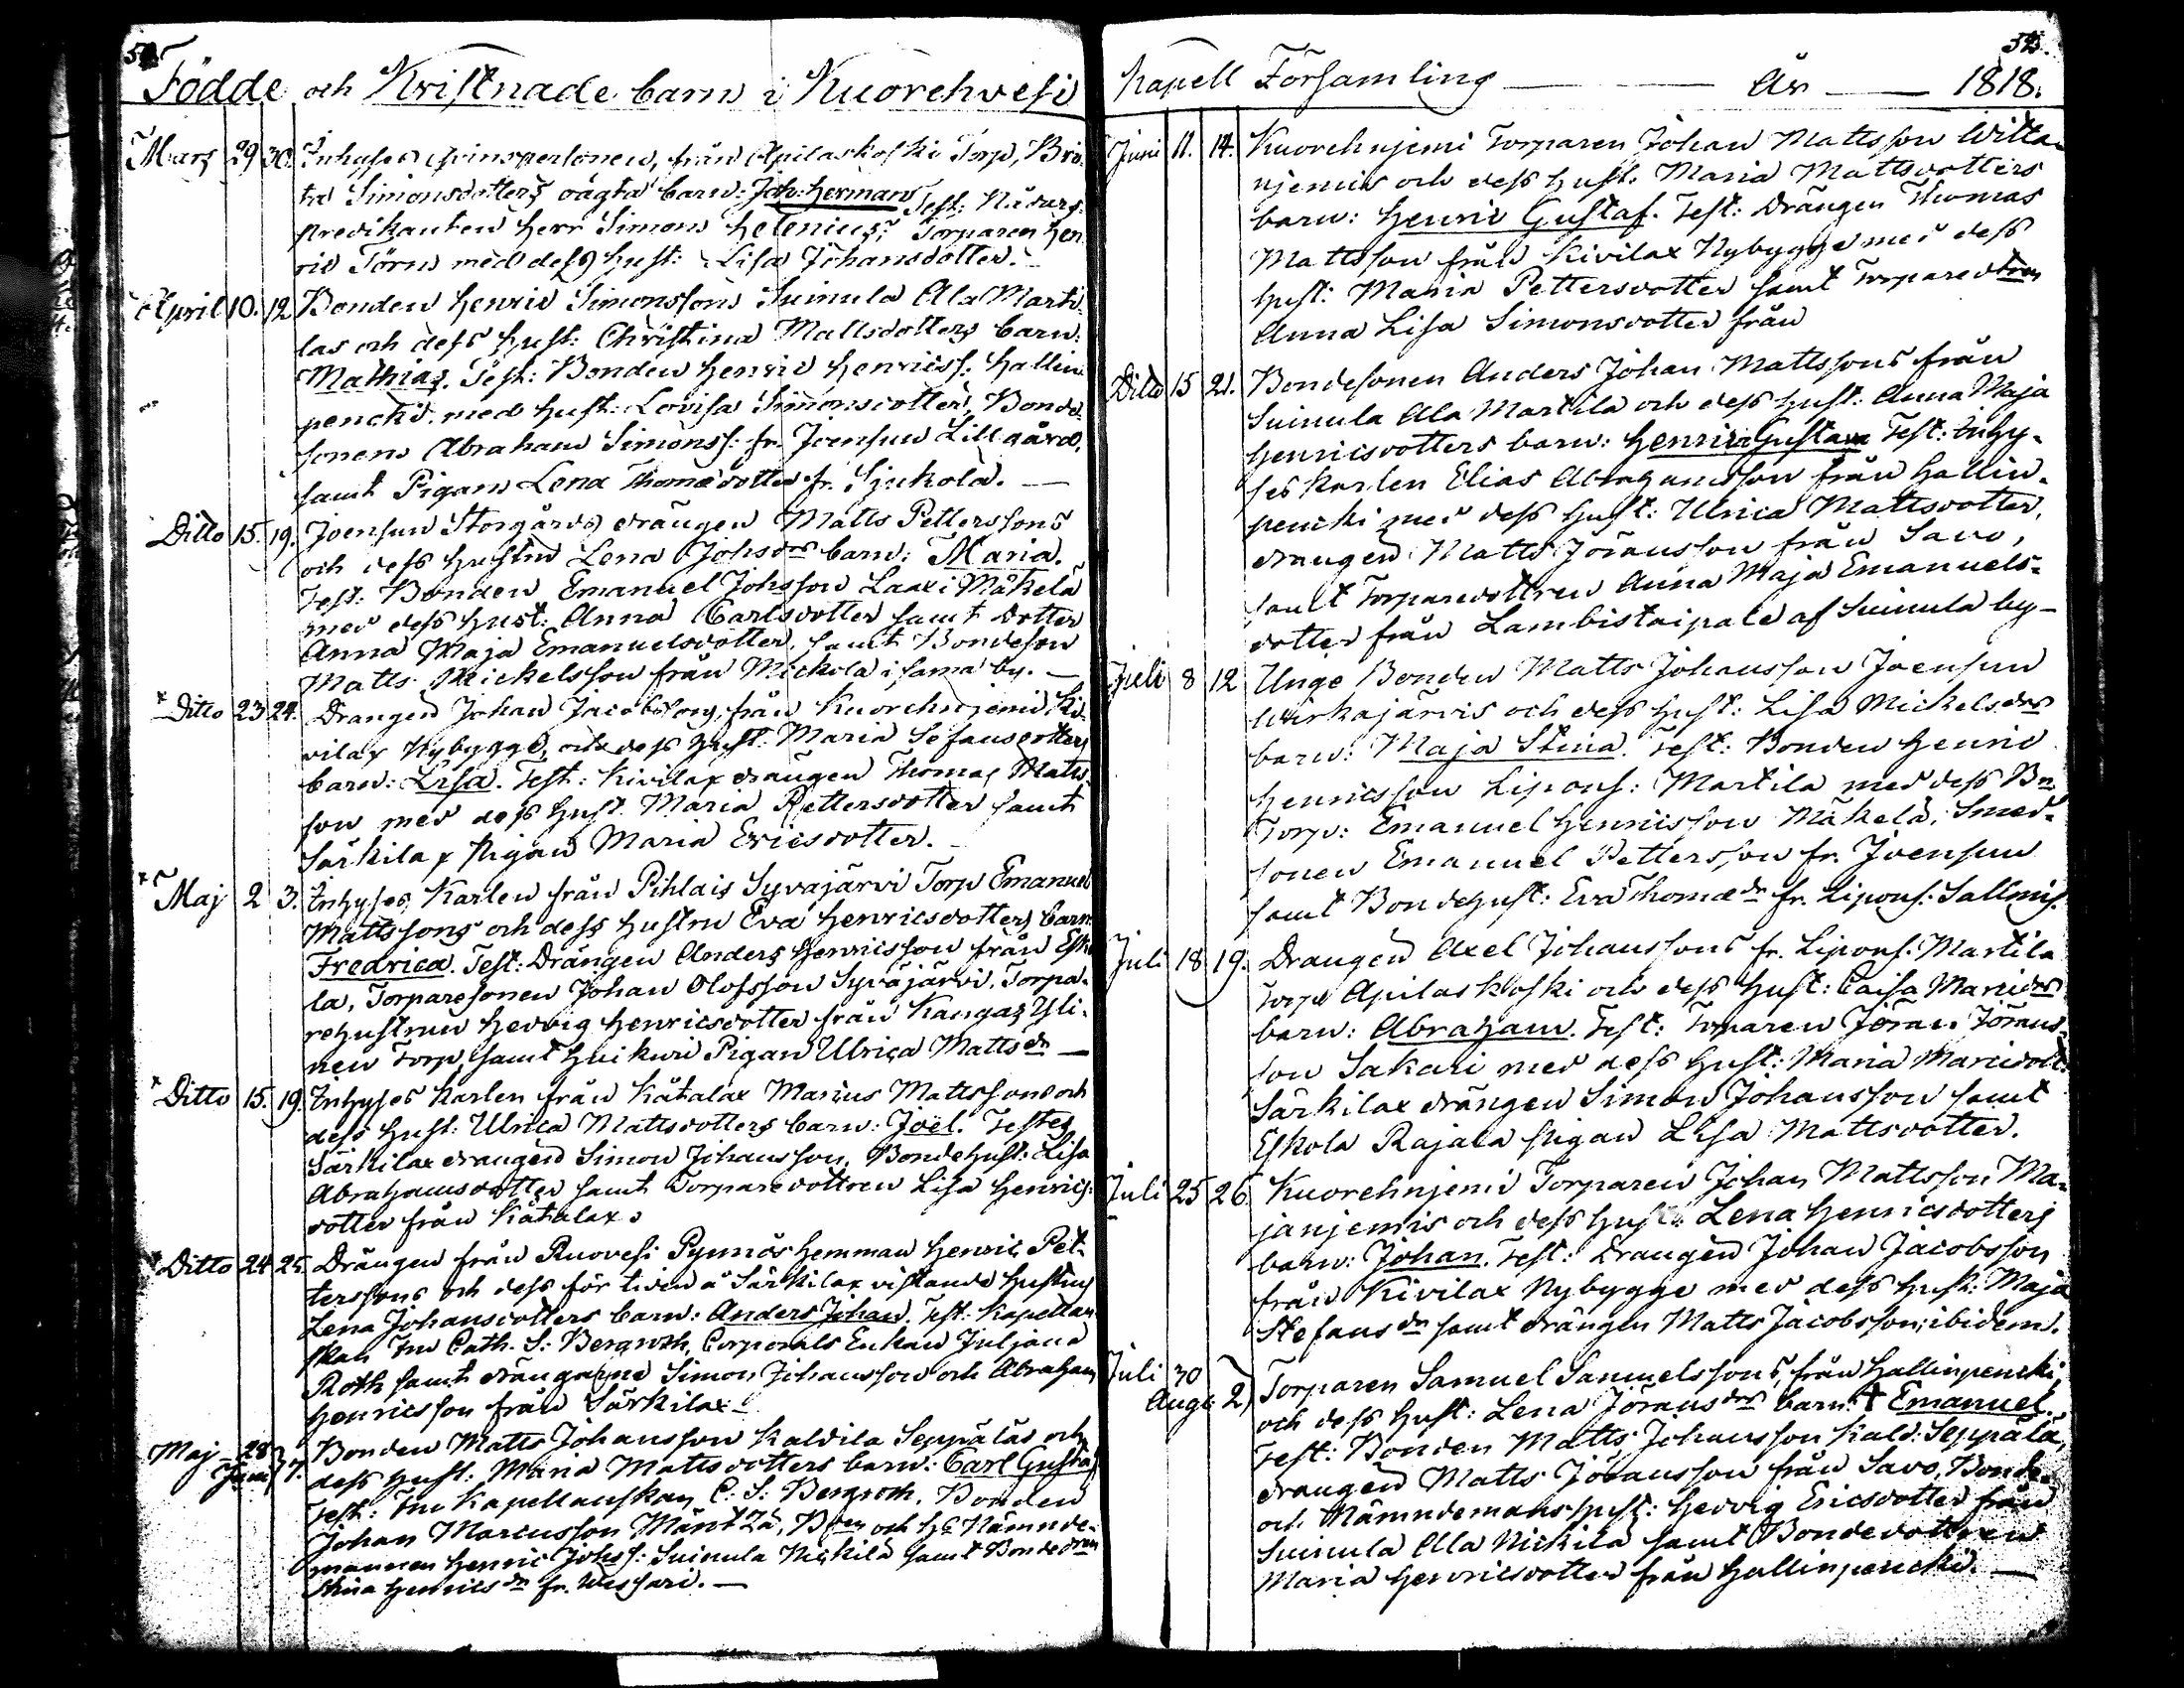 Födde och Kristnade barn i Kuorehvesi
Mars 29 30. Inhyses qvinspersonen, från Apilaskoski Torp, Bri-
ta Simonsdotters oägta barn: Joh: Herman Test: Nådårs-
predikanten Herr Simon Helenius, Torparen Hen-
ric Törn med dess hust: Lisa Johansdotter.
April 10. 12 Bonden Henric Simonssons Suinula Ala Marti-
las och dess hust: Christina Mattsdotters barn:
Mathias. Test: Bonden Henric Henricss. Hallin
pencki med hust: Lovisa Simonsdotter, Bonde-
sonen Abraham Simonss: fr. Joensuu Lillgård,
samt Pigan Lena Thomædotter fr. Sjukola. —
Ditto 15. 19. Joensuu Storgårds drängen Matts Petterssons
och dess hustru Lena Johsdrs barn: Maria.
Test: Bonden Emanuel Johsson Laaxi Mäkelä
med dess hust: Anna Carlsdotter samt dotter
Anna Maja Emanuelsdotter, samt Bondeson
Matts Mickelsson från Mickola i sama by. —
Ditto 23 24. Drängen Johan Jacobssons, från Kuorehnjemi Ki-
vilax Nybygge, och dess hust: Maria Stefansdotters
barn: Lisa. Test: Kivilax drängen Thomas Matts-
son med dess hust. Maria Pettersdotter samt
Särkilax Pigan Maria Ericsdotter.
Maj 2 3. Inhyses Karlen från Pihlais Syväjärvi Torp Emanuel
Mattssons och dess hustru Eva Henricsdotters barn
Fredrica. Test: Drängen Anders Henricsson från Esko
la, Torparesonen Johan Olofsson Syväjärvi, Torpa-
rehustrun Hedvig Henricsdotter från Kangas Yli-
nen Torp, samt Huikuri Pigan Ulrica Mattsdr —
Ditto 15. 19. Inhyses Karlen från Kåtalax Marcus Mattssons och
dess hust: Ulrica Mattsdotters barn: Joël. Testes
Särkilax drängen Simon Johansson, Bondehust: Lisa
Abrahamsdotter samt Torparedottren Lisa Henrics-
dotter från Kåtalax.
Ditto 24 25. Drängen från Ruovesi Pynnös hemman Henric Pet-
terssons och dess för tiden å Särkilax vistande hustrus
Lena Johansdotters barn: Anders Johan. Test: Kapellan-
skan Fru Cath. S: Bergroth, Corporals Enkan Juljana
Roth samt drängarne Simon Johansson och Abraham
Henricsson från Särkilax
Maj 28 Bonden Matts Johansson Kaldila Seppäläs och
Juni 7. dess hust: Maria Mattsdotters barn: Carl Gustaf
Test: Fru Kapellanskan C: S: Bergroth, Bonden
Johan Marcusson Mäntzä, Bden och Hs Nämnde-
mannen Henric Johss: Suinula Nickilä samt Bondedren
Stina Henricsdr fr. —
Kapell Församling — År — 1818.
Juni 11. 14. Kuorehnjemi Torparen Johan Mattsson Witta-
njemis och dess hust: Maria Mattsdotters
barn: Henric Gustaf. Test: Drängen Thomas
Mattsson från Kivilax Nybygge med dess
hust: Maria Pettersdotter samt Torparedtren
Anna Lisa Simonsdotter från
Ditto 15 21. Bondesonen Anders Johan Mattssons från
Suinula Ala Martila och dess hust: Anna Maja
Henricsdotters barn: Henrica Gustava Test: Inhy-
ses Karlen Elias Abrahamsson från Hallin-
pencki med dess hust: Ulrica Mattsdotter,
drängen Matts Jöransson från Savo,
samt Torparedottren Anna Maja Emanuels-
dotter från Lambistaipale af Suinula by —
Juli 8 12 Unge Bonden Matts Johansson Joensuu
Wirkajärvis och dess hust: Lisa Mickelsdrs
barn: Maja Stina. Test: Bonden Henric
Henricsson Lipons: Martila med dess Bn
Torp: Emanuel Henricsson Mäkelä, Smed-
sonen Emanuel Pettersson fr. Joensuu
samt Bondehust: Eva Thomædr fr. Lipons: Sallmis.
Juli 18 19. Drängen Axel Johanssons fr. Lipons: Martila
Torp Apilaskoski och dess hust: Caisa Maridrs
barn: Abraham. Test: Torparen Jöran Jörans-
son Sakari med dess hust: Maria Marcidott:
Särkilax drängen Simon Johansson samt
Eskola Rajala Pigan Lisa Mattsdotter.
Juli 25 26. Kuorehnjemi Torparen Johan Mattsson Ma-
janjemis och dess hust: Lena Henricsdotters
barn: Johan. Test: Drängen Johan Jacobsson
från Kivilax Nybygge med dess hust: Maja
Stefansdr samt drängen Matts Jacobsson, ibidem.
Juli 30 Torparen Samuel Samuelssons, från Hallinpencki,
Aug: 2 och dess hust: Lena Jöransdrs barn: Emanuel.
Test: Bonden Matts Johansson Kald: Seppälä,
drängen Matts Jöransson från Savo, Bonde-
och Nämndemans hust: Hedvig Ericsdotter från
Suinula Ala Nickilä samt Bondedottren
Maria Henricsdotter från Hallinpencki. —